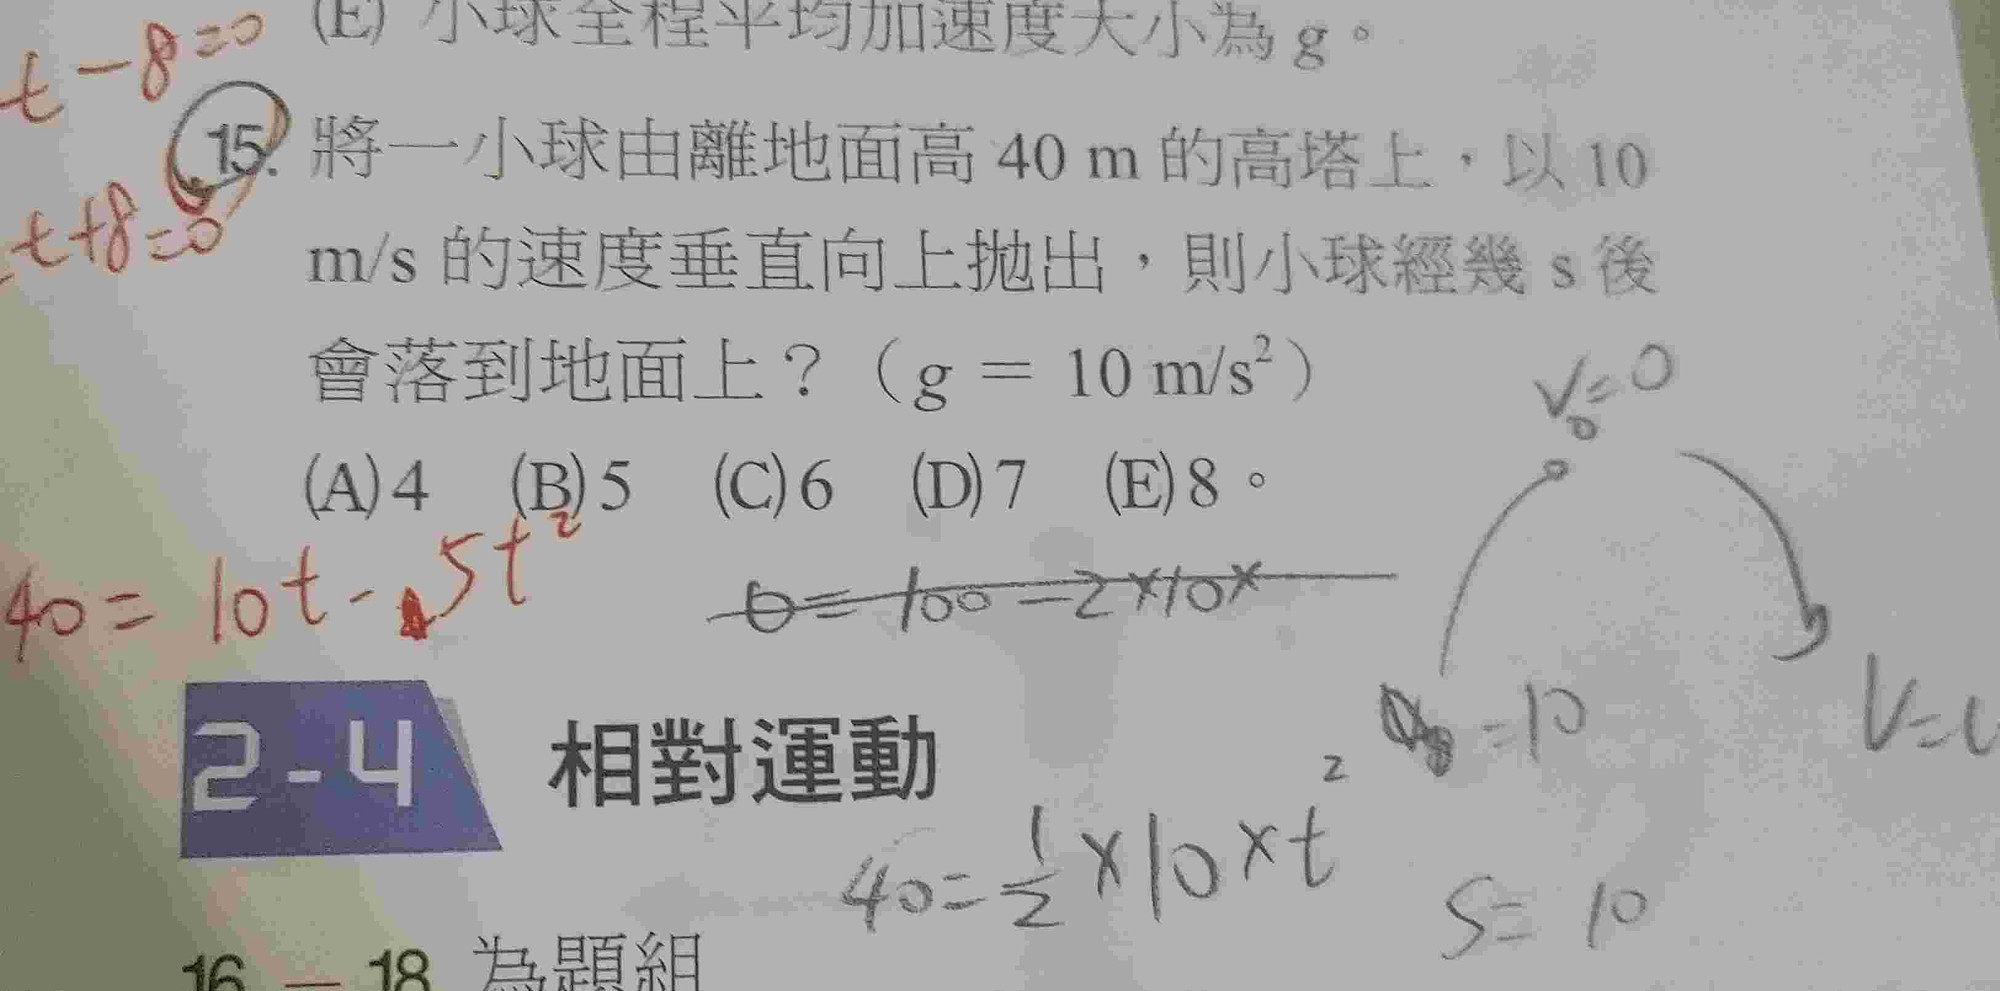 (E) 小球全程平均加速度大小為 g。
t-8=0
15. 將一小球由離地面高 40 m 的高塔上，以 10
t+8=0
m/s 的速度垂直向上拋出，則小球經幾 s 後
會落到地面上？（g = 10 m/s²）
V₀=0
(A)4 (B)5 (C)6 (D)7 (E)8。
40=10t-5t²
0=100-2×10×
=10
V=
2-4 相對運動
40=½×10×t²
S=10
16-18 為題組